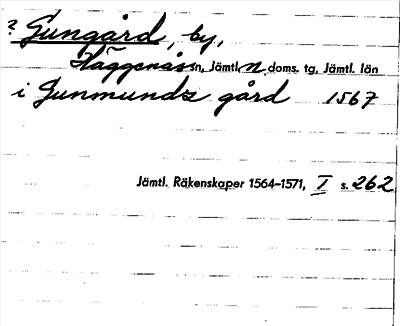 ? Gungård, by,
Häggenås sn, Jämtl. n. doms. tg, Jämtl. län
i Gunmundz gård 1567
Jämtl. Räkenskaper 1564-1571, I s. 262